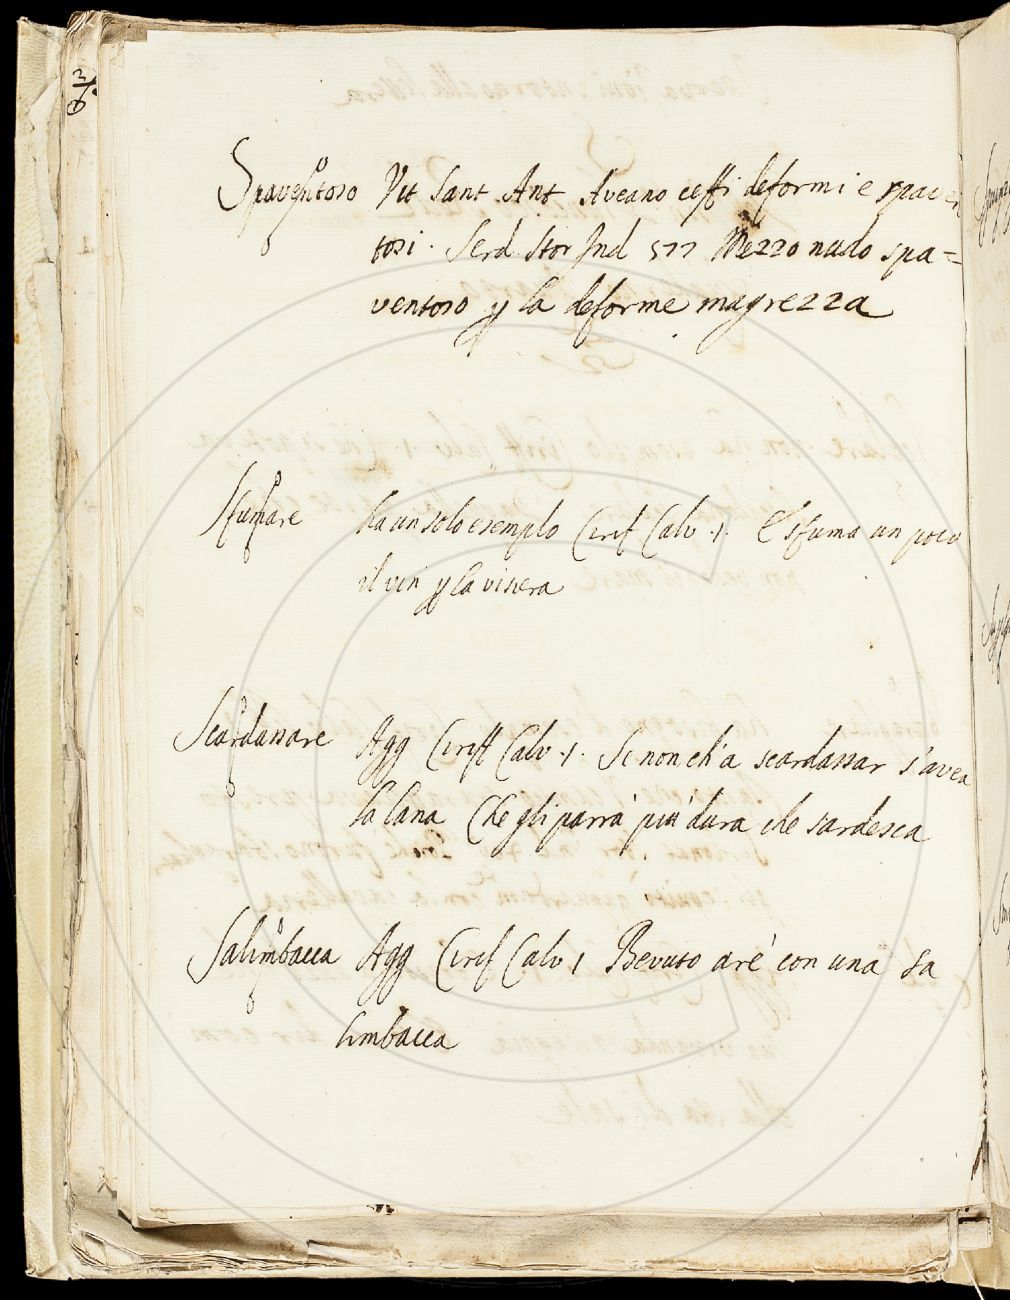 Spaventoso Vit Sant Ant Aveano ceffi deformi e spaven
tosi. Serd. Stor Ind 577 Mezzo nudo spa=
ventoso p la deforme magrezza
Sfumare ha un solo esempio Cirif Calv .1. E sfuma un poco
il vin p la visera
Scardassare Agg Ciriff Calv .1. Se non ch'a scardassar s'avea
la lana Che gli parrà più dura che sardesca
Salimbacca Agg Cirif Calv 1 Bevuto are' con una sa
limbacca